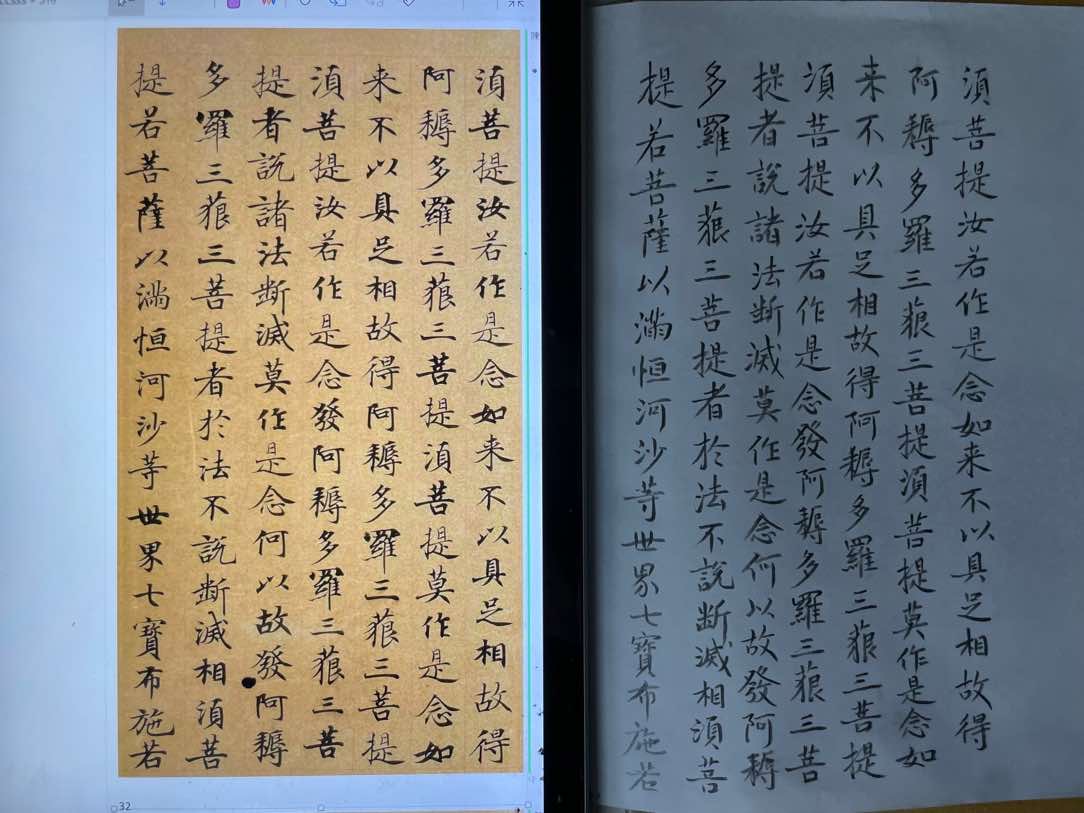 須菩提汝若作是念如来不以具足相故得
阿耨多羅三藐三菩提須菩提莫作是念如
来不以具足相故得阿耨多羅三藐三菩提
須菩提汝若作是念發阿耨多羅三藐三菩
提者說諸法断滅莫作是念何以故發阿耨
多羅三藐三菩提者於法不說断滅相須菩
提若菩薩以滿恒河沙等世界七寶布施若
32
須菩提汝若作是念如来不以具足相故得
阿耨多羅三藐三菩提須菩提莫作是念如
来不以具足相故得阿耨多羅三藐三菩提
須菩提汝若作是念發阿耨多羅三藐三菩
提者說諸法断滅莫作是念何以故發阿耨
多羅三藐三菩提者於法不說断滅相須菩
提若菩薩以滿恒河沙等世界七寶布施若